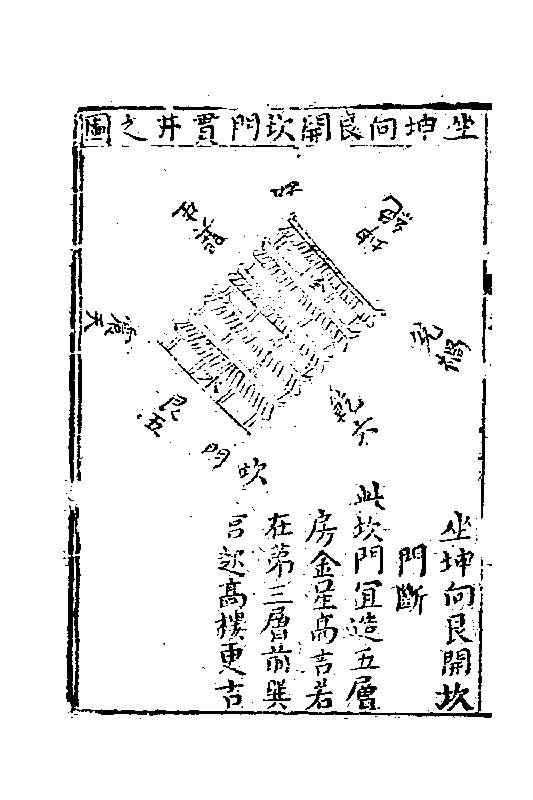 坐坤向艮開坎門貫井之圖
兌禍
乾六
坎門
艮五
震天
水
坐坤向艮開坎
門斷
此坎門宜造五層
房金星高吉若
在第三層前巽
宮起高樓更吉